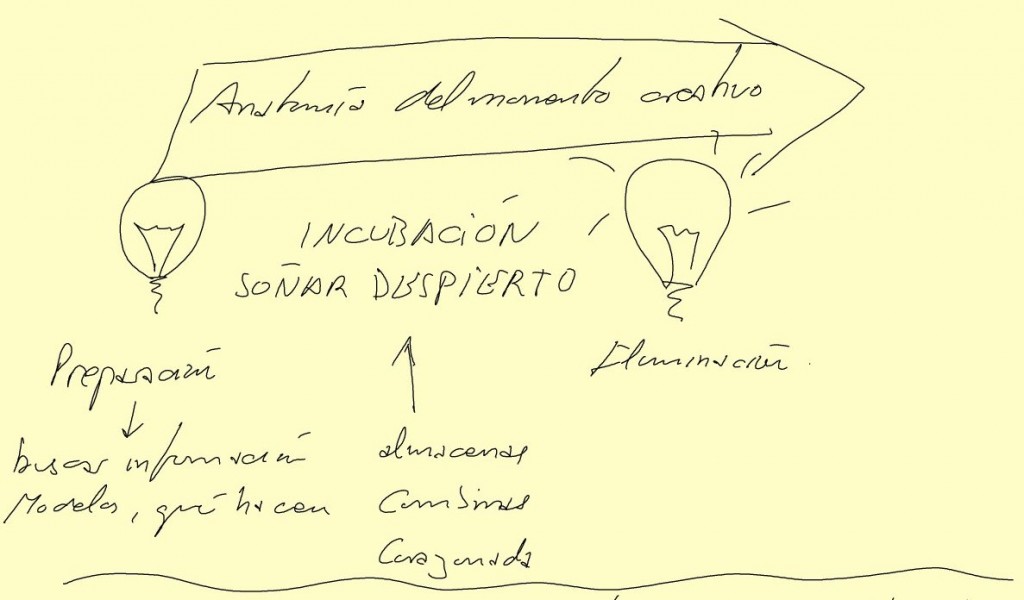 Anatomía del momento creativo
INCUBACIÓN
SOÑAR DESPIERTO
Preparación
Iluminación
buscar información
Modelos, qué hacen
almacenas
Combinas
Corazonada